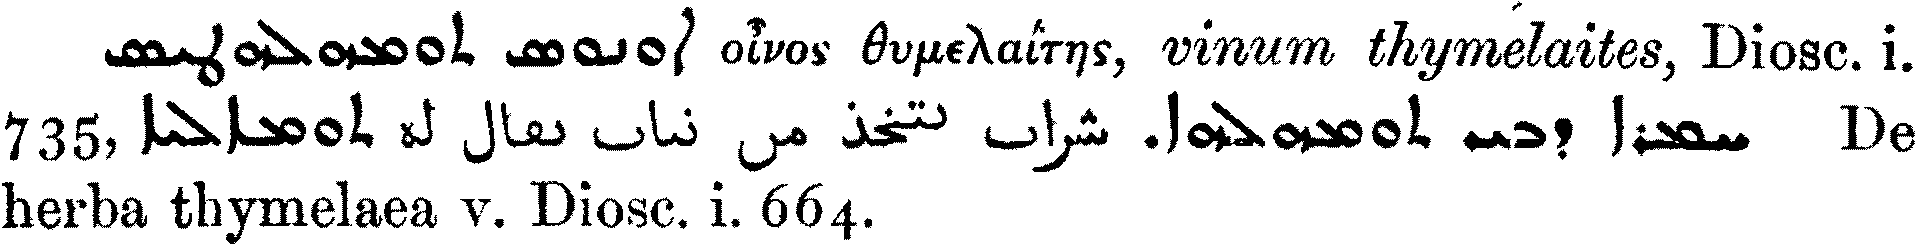 ܐܘܢܘܣ ܬܘܡܘܠܘܛܝܣ οἶνος θυμελαίτης, vinum thymelaites, Diosc. i.
735, ܚܡܪܐ ܕܒܝ ܬܘܡܘܠܘܐ. شراب يتخذ من نبات يقال له ܬܘܡܐܠܝܐ De
herba thymelaea v. Diosc. i. 664.